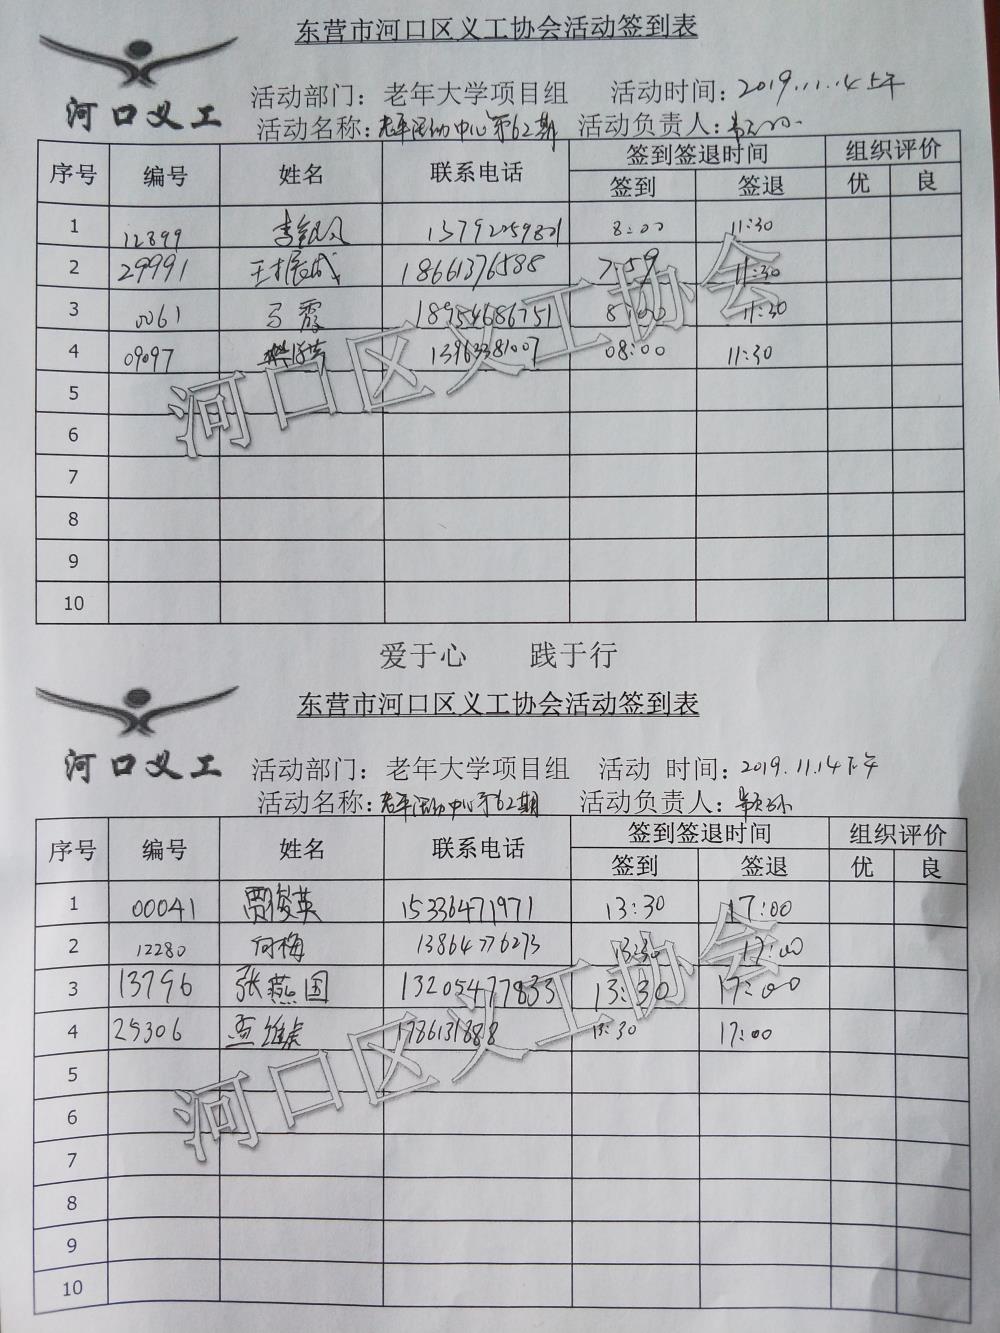 东营市河口区义工协会活动签到表
河口义工
活动部门：老年大学项目组 活动时间：2019.11.14上午
活动名称：老年活动中心第62期 活动负责人：
序号 编号 姓名 联系电话 签到签退时间 组织评价
签到 签退 优 良
1 12899 李 13792059801 8:00 11:30
2 29991 王振成 18661376588 7:59 11:30
3 0061 弓霞 18954686751 8:00 11:30
4 09097 13963381007 08:00 11:30
5
6
7
8
9
10
爱于心 践于行
东营市河口区义工协会活动签到表
河口义工
活动部门：老年大学项目组 活动 时间：2019.11.14下午
活动名称：老年活动中心第62期 活动负责人：
序号 编号 姓名 联系电话 签到签退时间 组织评价
签到 签退 优 良
1 00041 贾俊英 15336471971 13:30 17:00
2 12280 何梅 13864776273 13:30 17:00
3 13796 张燕国 13205477833 13:30 17:00
4 25306 1786131888 13:30 17:00
5
6
7
8
9
10
河口区义工协会
河口区义工协会